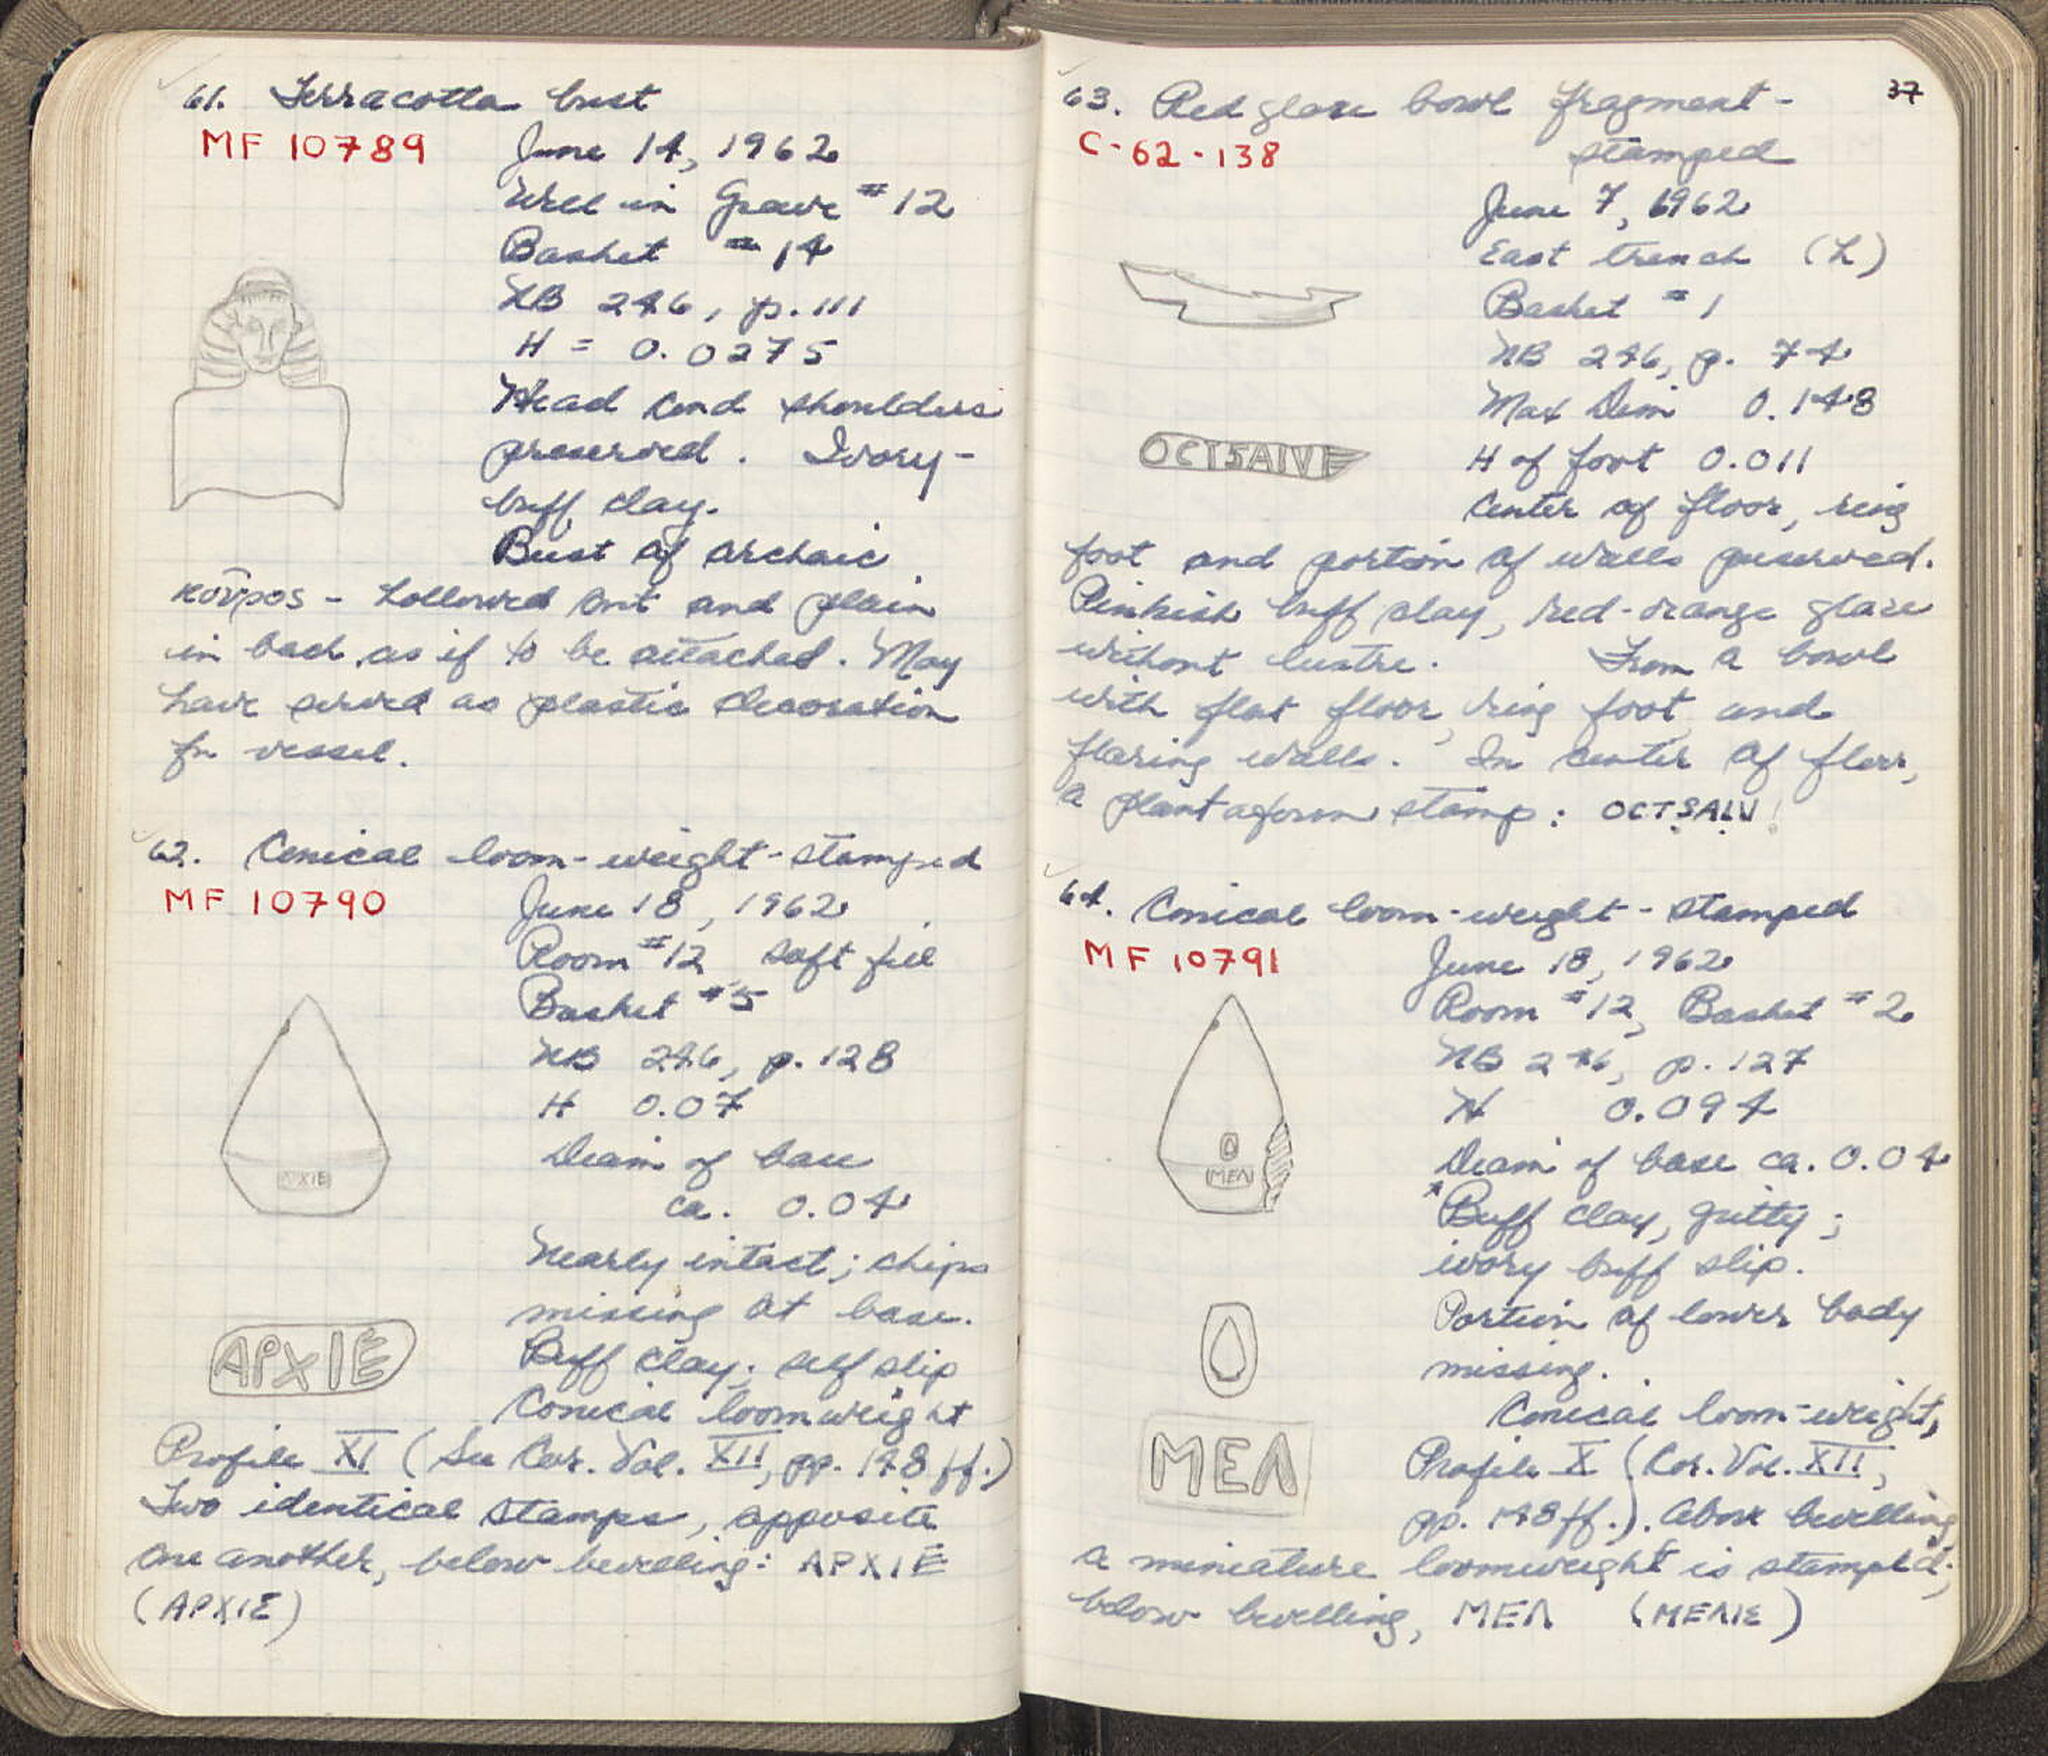 61. Terracotta bust
MF 10789
June 14, 1962
Well in Grave #12
Basket #14
NB 246, p. 111
H = 0.0275
Head and shoulders
preserved. Ivory-
buff clay.
Bust of archaic
κοῦρος - hollowed out and plain
in back as if to be attached. May
have served as plastic decoration
for vessel.
62. Conical loom-weight-stamped
MF 10790
June 18, 1962
Room #12 soft fill
Basket #5
NB 246, p. 128
H 0.07
Diam of base
ca. 0.04
Nearly intact; chips
missing at base.
Buff clay; self slip
Conical loomweight
Profile XI (See Cor. Vol. XII, pp. 148 ff.)
Two identical stamps, opposite
one another, below bevelling: ΑΡΧΙΕ
(ΑΡΧΙΕ)
ΑΡΧΙΕ
ΑΡΧΙΕ
37
63. Red glaze bowl fragment -
stamped
C-62-138
June 7, 1962
East trench (L)
Basket #1
NB 246, p. 74
Max Dim 0.148
H of foot 0.011
Center of floor, ring
foot and portion of walls preserved.
Pinkish buff clay, red-orange glaze
without lustre. From a bowl
with flat floor, ring foot, and
flaring walls. In center of floor,
a plantaform stamp: OCTSALV
OCTSALV
64. Conical loom-weight - stamped
MF 10791
June 18, 1962
Room #12, Basket #2
NB 246, p. 127
H 0.094
Diam of base ca. 0.04
Buff clay, gritty;
ivory buff slip.
Portion of lower body
missing.
Conical loom-weight,
Profile X (Cor. Vol. XII,
pp. 148 ff.). Above bevelling
a miniature loomweight is stamped;
below bevelling, ΜΕΛ (ΜΕΛΙΕ)
ΜΕΛ
ΜΕΛ